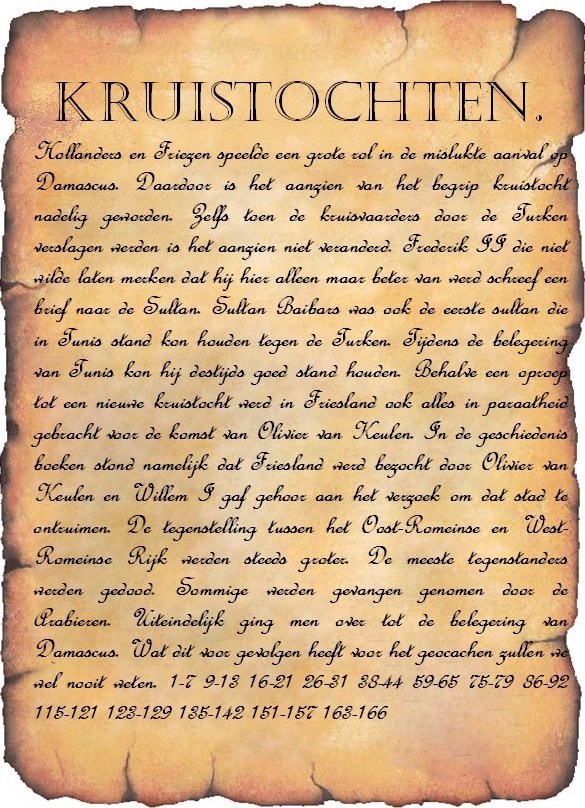 KRUISTOCHTEN.
Hollanders en Friezen speelde een grote rol in de mislukte aanval op
Damascus. Daardoor is het aanzien van het begrip kruistocht
nadelig geworden. Zelfs toen de kruisvaarders door de Turken
verslagen werden is het aanzien niet veranderd. Frederik II die niet
wilde laten merken dat hij hier alleen maar beter van werd schreef een
brief naar de Sultan. Sultan Baibars was ook de eerste sultan die
in Tunis stand kon houden tegen de Turken. Tijdens de belegering
van Tunis kon hij destijds goed stand houden. Behalve een oproep
tot een nieuwe kruistocht werd in Friesland ook alles in paraatheid
gebracht voor de komst van Olivier van Keulen. In de geschiedenis
boeken stond namelijk dat Friesland werd bezocht door Olivier van
Keulen en Willem I gaf gehoor aan het verzoek om dat stad te
ontruimen. De tegenstelling tussen het Oost-Romeinse en West-
Romeinse Rijk werden steeds groter. De meeste tegenstanders
werden gedood. Sommige werden gevangen genomen door de
Arabieren. Uiteindelijk ging men over tot de belegering van
Damascus. Wat dit voor gevolgen heeft voor het geocachen zullen we
wel nooit weten. 1-7 9-13 16-21 26-31 38-44 59-65 75-79 86-92
115-121 123-129 135-142 151-157 163-166